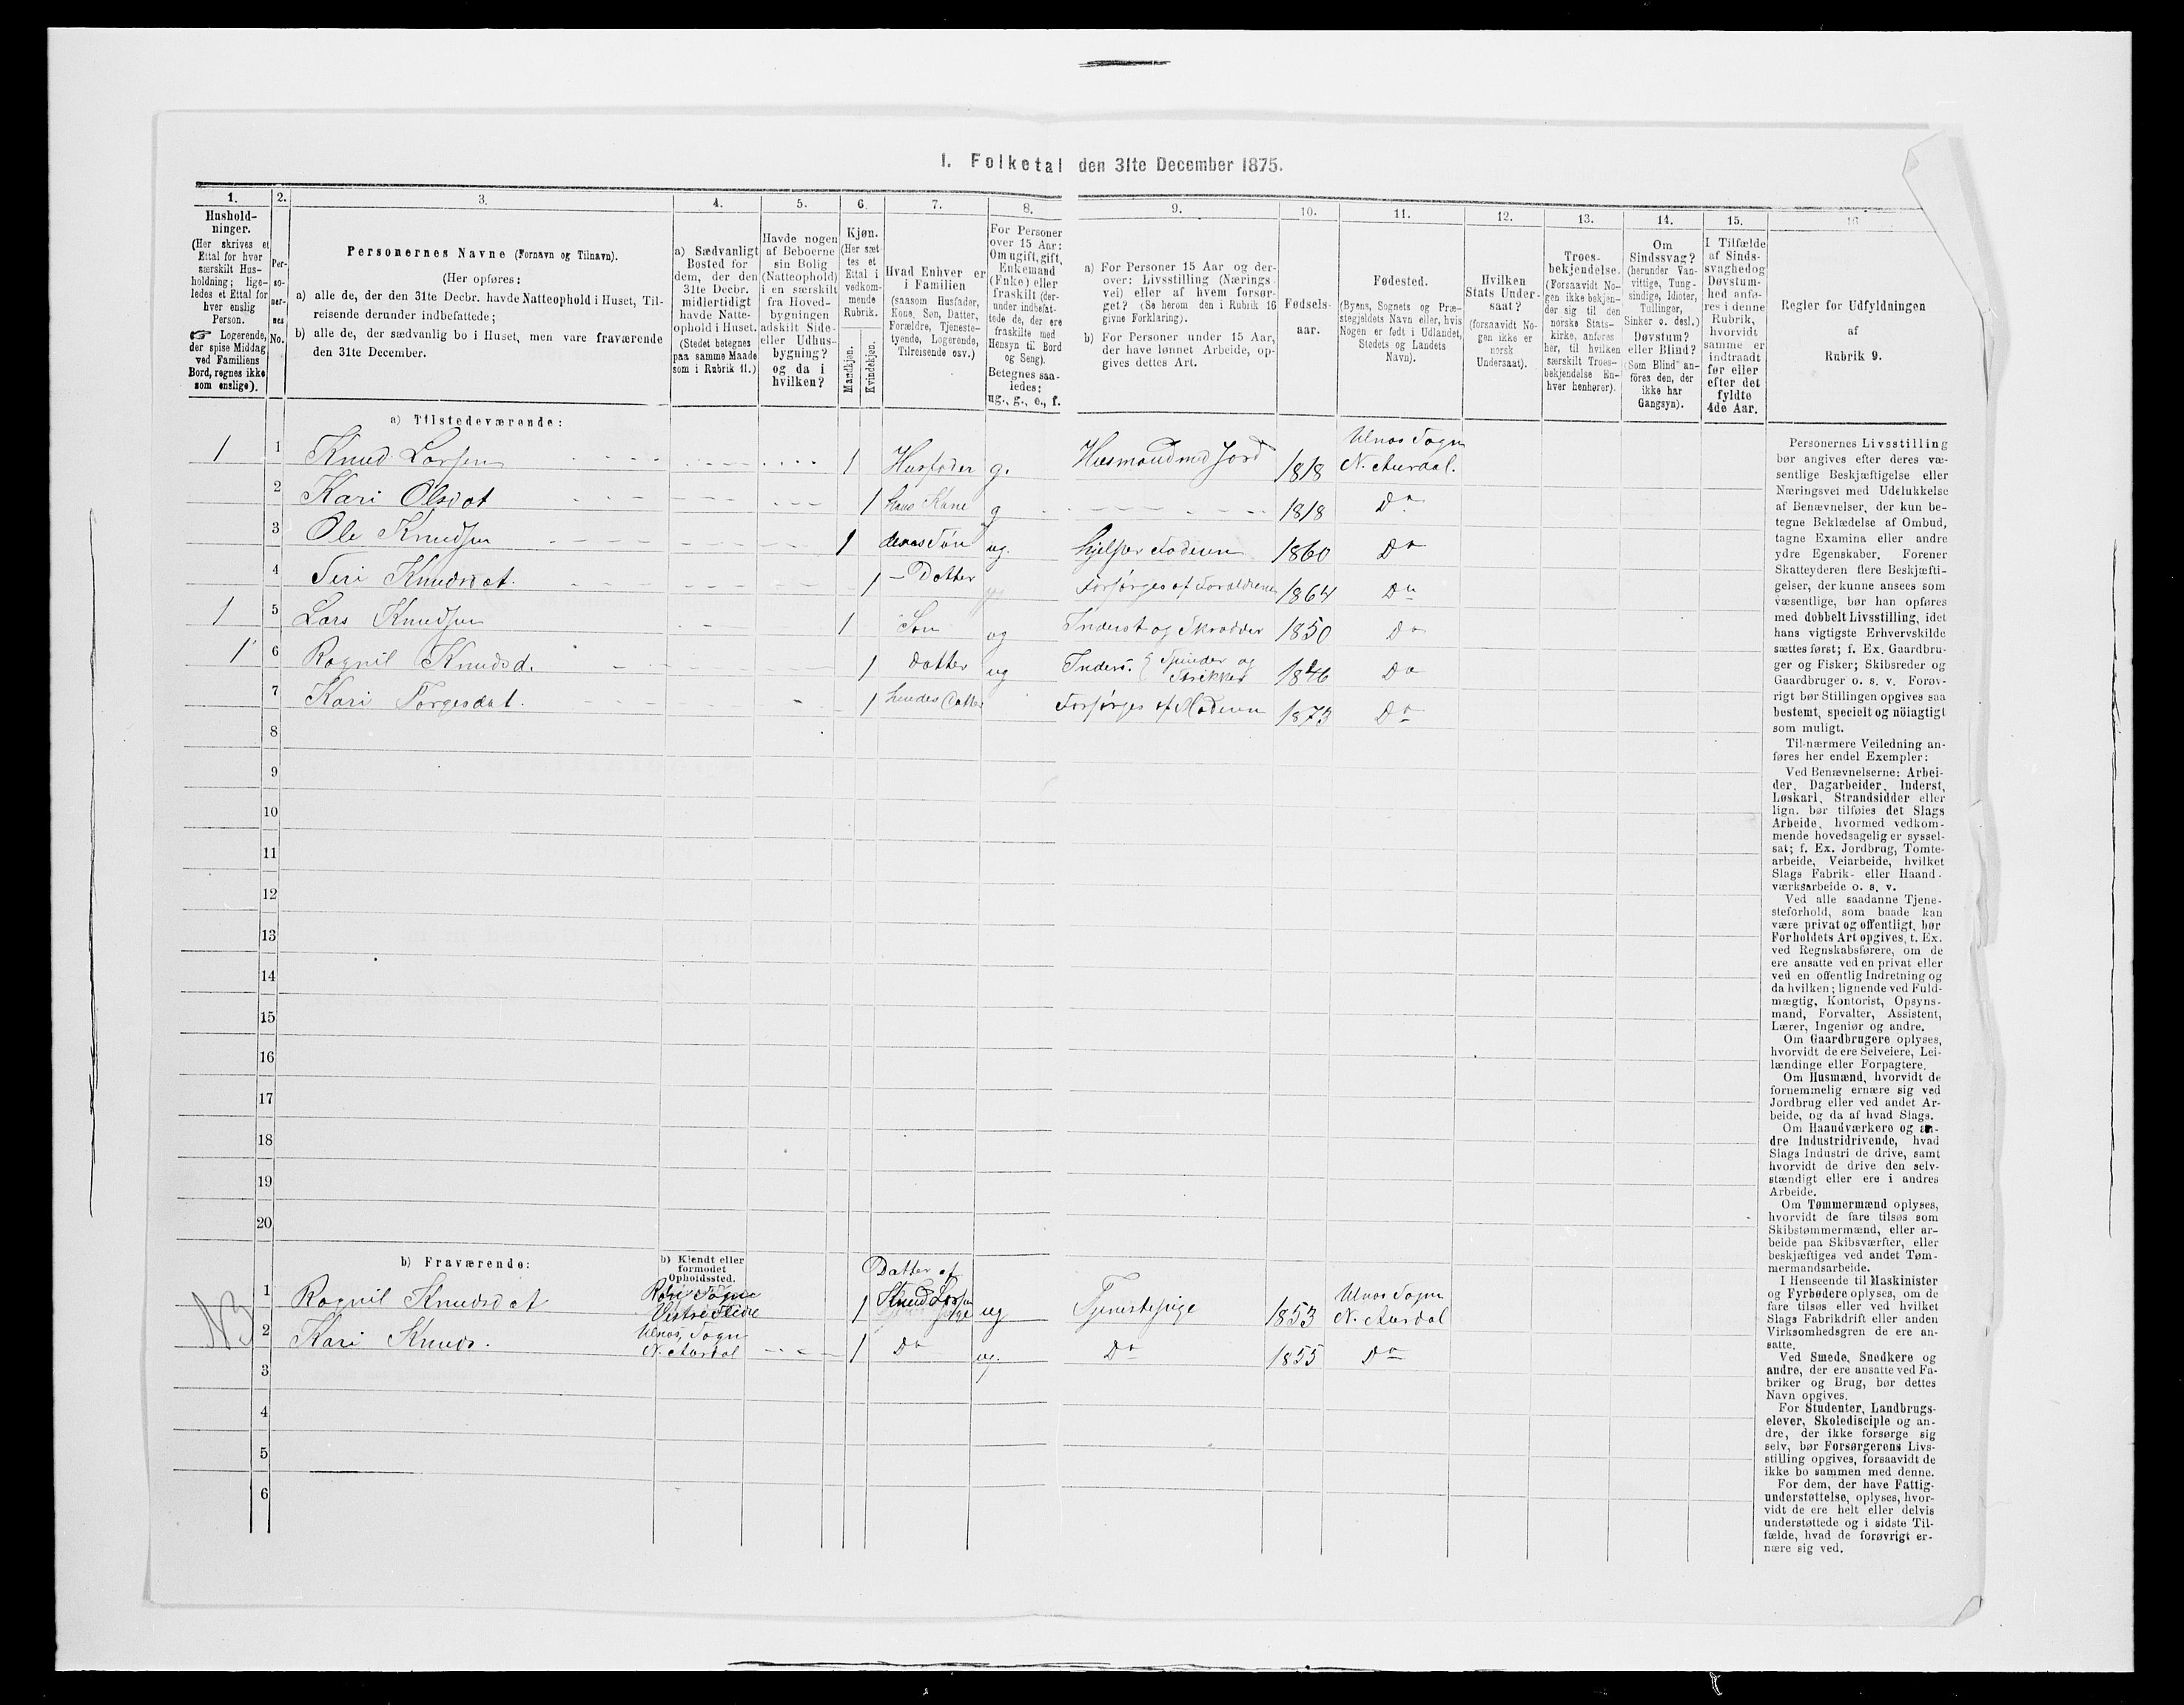 I. Folketal den 31te December 1875.
1.
Hushold-
ninger.
(Her skrives et
Ettal for hver
særskilt Hus-
holdning; lige-
ledes et Ettal for
hver enslig
Person.
☞ Logerende,
der spise Middag
ved Familiens
Bord, regnes ikke
som enslige).
2.
Per-
so-
ner-
nes
No.
3.
Personernes Navne (Fornavn og Tilnavn).
(Her opføres:
a) alle de, der den 31te Decbr. havde Natteophold i Huset, Til-
reisende derunder indbefattede;
b) alle de, der sædvanlig bo i Huset, men vare fraværende
den 31te December.
4.
a) Sædvanligt
Bosted for
dem, der den
31te Decbr.
midlertidigt
havde Natte-
ophold i Huset.
(Stedet betegnes
paa samme Maade
som i Rubrik 11.)
5.
Havde nogen
af Beboerne
sin Bolig
(Natteophold)
i en særskilt
fra Hoved-
bygningen
adskilt Side-
eller Udhus-
bygning?
og da i
hvilken?
6.
Kjøn.
(Her sæt-
tes et
Ettal i
vedkom-
mende
Rubrik.
Mandkjøn.
Kvindekjøn.
7.
Hvad Enhver er
i Familien
(saasom Husfader,
Kone, Søn, Datter,
Forældre, Tjeneste-
tyende, Logerende,
Tilreisende osv.)
8.
For Personer
over 15 Aar:
Om ugift, gift,
Enkemand
(Enke) eller
fraskilt (der-
under indbefat-
tede de, der ere
fraskilte med
Hensyn til Bord
og Seng).
Betegnes saa-
ledes:
ug., g., e., f.
9.
a) For Personer 15 Aar og der-
over: Livsstilling (Nærings-
vei) eller af hvem forsør-
get? (Se herom den i Rubrik 16
givne Forklaring).
b) For Personer under 15 Aar,
der have lønnet Arbeide, op-
gives dettes Art.
10.
Fødsels-
aar.
11.
Fødested.
(Byens, Sognets og Præ-
stegjeldets Navn eller, hvis
Nogen er født i Udlandet,
Stedets og Landets
Navn).
12.
Hvilken
Stats Under-
saat?
(forsaavidt No-
gen ikke er
norsk
Undersaat).
13.
Troes-
bekjendelse.
(Forsaavidt No-
gen ikke bekjen-
der sig til den
norske Stats-
kirke, anføres
her, til hvilken
særskilt Troes-
bekjendelse En-
hver henhører).
14.
Om
Sindssvag?
(herunder Van-
vittige, Tung-
sindige, Idioter,
Tullinger,
Sinker o. desl.)
Døvstum?
eller Blind?
(Som Blind" an-
føres den, der
ikke har
Gangsyn).
15.
I Tilfælde
af Sinds-
svaghed og
Døvstum-
hed anfø-
res i denne
Rubrik,
hvorvidt
samme er
indtraadt
før eller
efter det
fyldte
4de Aar.
16
Regler for Udfyldningen
af
Rubrik 9.
a) Tilstedeværende:
1 1 Knud Larsen 1 Husfader g. Husmand med Jord 1818 Ulnæs Sogn N. Aurdal.
2 Kari Olsdat 1 hans Kone g 1818 Do
3 Ole Knudsen 1 deres Søn ug. hjelper Faderen 1860 Do
4 Siri Knudsdat. 1 – Datter Forsørges af Forældrene 1864 Do
1 5 Lars Knudsen 1 Søn ug Inderst og Skrædder 1850 Do
1 6 Ragnil Knudsd. 1 Datter ug Inders. Spinder og Strikker 1846 Do
7 Kari Torgesdat. 1 hendes Datter Forsørges af Moderen 1873 Do
8
9
10
11
12
13
14
15
16
17
18
19
20
b) Fraværende:
b) Kjendt eller
formodet
Opholdssted.
1 Ragnil Knudsdat Røn Sogn Vestre Slidre 1 Datter af Knud Larsen ug Tjenestepige 1853 Ulnæs Sogn N. Aurdal
2 Kari Knuds. Ulnæs Sogn N. Aurdal 1 Do ug. Do 1855 Do
3
4
5
6
Personernes Livsstilling
bør angives efter deres væ-
sentlige Beskjæftigelse eller
Næringsvei med Udelukkelse
af Benævnelser, der kun be-
tegne Beklædelse af Ombud,
tagne Examina eller andre
ydre Egenskaber. Forener
Skatteyderen flere Beskjæfti-
gelser, der kunne ansees som
væsentlige, bør han opføres
med dobbelt Livsstilling, idet
hans vigtigste Erhvervskilde
sættes først; f. Ex. Gaardbru-
ger og Fisker; Skibsreder og
Gaardbruger o. s. v. Forøv-
rigt bør Stillingen opgives saa
bestemt, specielt og nöiagtigt
som muligt.
Til nærmere Veiledning an-
føres her endel Exempler:
Ved Benævnelserne: Arbei-
der, Dagarbeider, Inderst,
Løskarl, Strandsidder eller
lign. bør tilføies det Slags
Arbeide, hvormed vedkom-
mende hovedsagelig er syssel-
sat; f. Ex. Jordbrug, Tomte-
arbeide, Veiarbeide, hvilket
Slags Fabrik- eller Haand-
værksarbeide o. s. v.
Ved alle saadanne Tjene-
steforhold, som baade kan
være privat og offentligt, bør
Forholdets Art opgives, t. Ex.
ved Regnskabsførere, om de
ere ansatte ved en privat eller
ved en offentlig Indretning og
da hvilken; lignende ved Fuld-
mægtig, Kontorist, Opsyns-
mand, Forvalter, Assistent,
Lærer, Ingeniør og andre.
Om Gaardbrugere oplyses,
hvorvidt de ere Selveiere, Lei-
lændinge eller Forpagtere.
Om Husmænd, hvorvidt de
fornemmelig ernære sig ved
Jordbrug eller ved andet Ar-
beide, og da af hvad Slags.
Om Haandværkere og an-
dre Industridrivende, hvad
Slags Industri de drive, samt
hvorvidt de drive den selv-
stændigt eller ere i andres
Arbeide.
Om Tømmermænd oplyses,
hvorvidt de fare tilsøs som
Skibstømmermænd, eller ar-
beide paa Skibsværfter, eller
beskjæftiges ved andet Tøm-
mermandsarbeide.
I Henseende til Maskinister
og Fyrbødere oplyses, om de
fare tilsøs eller ved hvilket
Slags Fabrikdrift eller anden
Virksomhedsgren de ere an-
satte.
Ved Smede, Snedkere og
andre, der ere ansatte ved Fa-
briker og Brug, bør dettes
Navn opgives.
For Studenter, Landbrugs-
elever, Skoledisciple og an-
dre, der ikke forsørge sig
selv, bør Forsørgerens Livs-
stilling opgives, forsaavidt de
ikke bo sammen med denne.
For dem, der have Fattig-
understøttelse, oplyses, hvor-
vidt de ere helt eller delvis
understøttede og i sidste Til-
fælde, hvad de forøvrigt er-
nære sig ved.